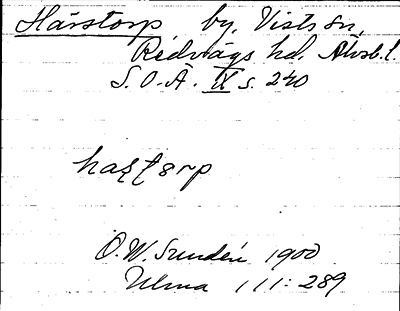 Härstorp by, Vists sn,
Redvägs hd. Älvsb. l.
S. O. Ä. IX s. 240
O. W. Sundén 1900
Ulma 111:289